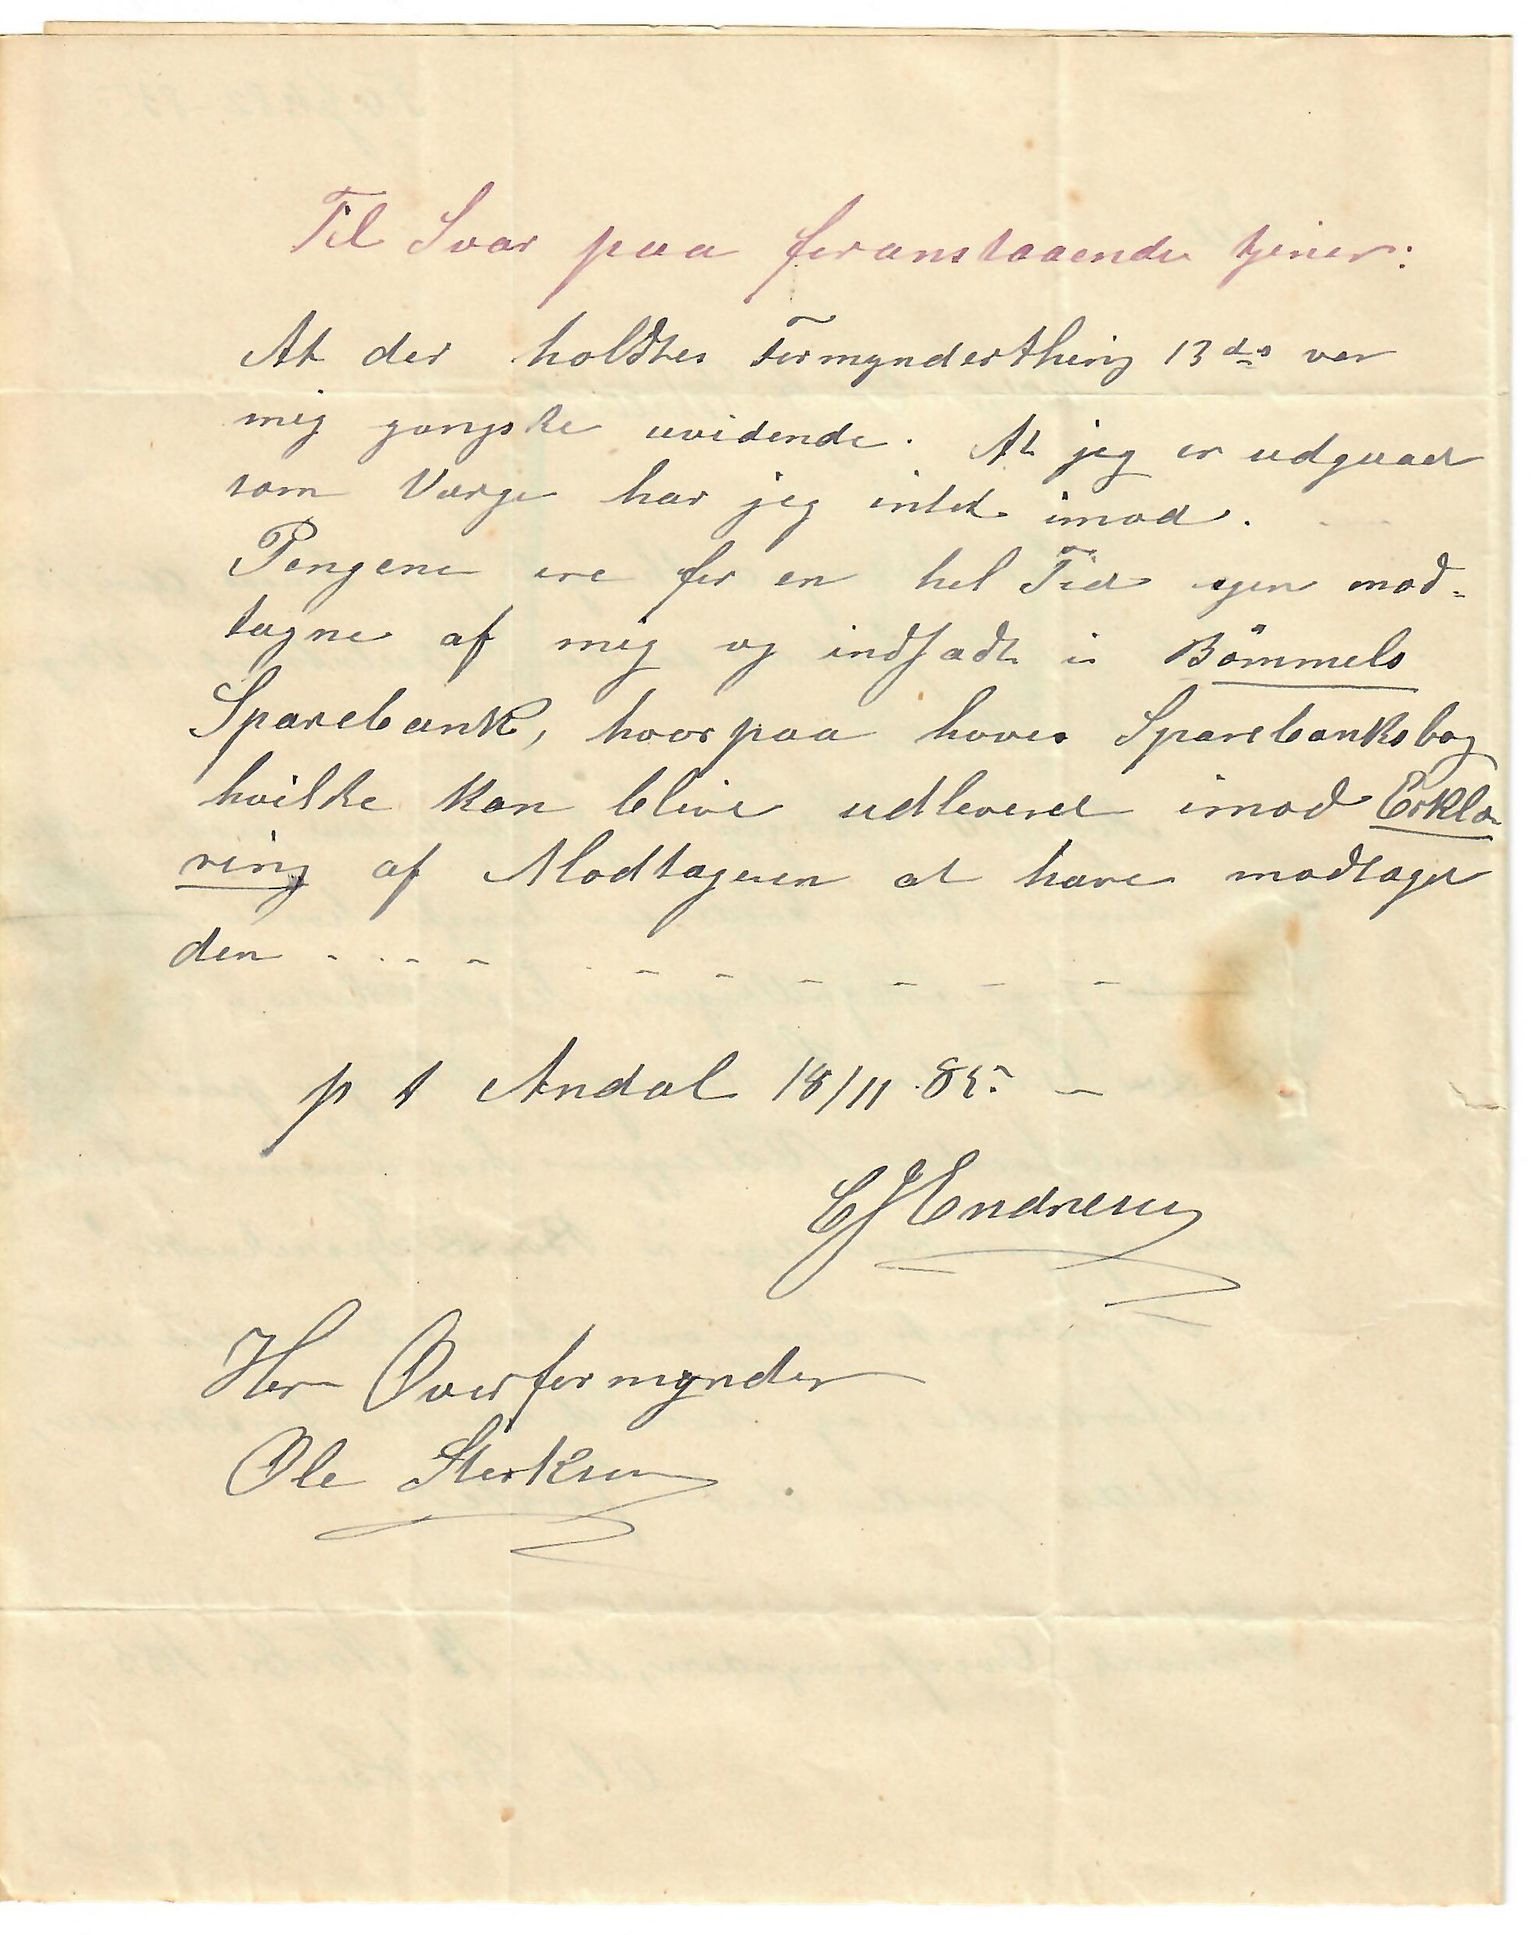 Til Svar paa foranstaaende tjener:
At der holdtes Formynderthing 13 ds var
mig ganske uvidende. At jeg er udgaaet
som Værge har jeg intet imod.
Pengene ere for en hel Tid igen mod-
tagne af mig og indsadt i Bömmels
Sparebank, hvorpaa haves Sparebanksbog
hvilke kan blive udleveret imod Erklæ
ring af Modtageren at have modtaget
den - - - - - - - - - - -
p t Andal 18/11 85. -
Endresen
Herr Overformynder
Ole Sterksen